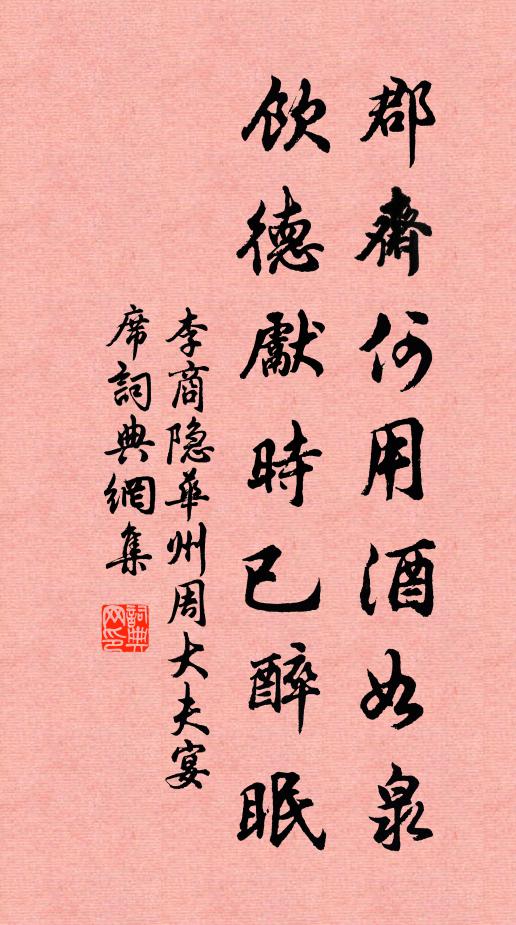 郡齋何用酒如泉
飲德獻時已醉眠
李商隐華州周大夫宴
席詞典網集
詞典网印